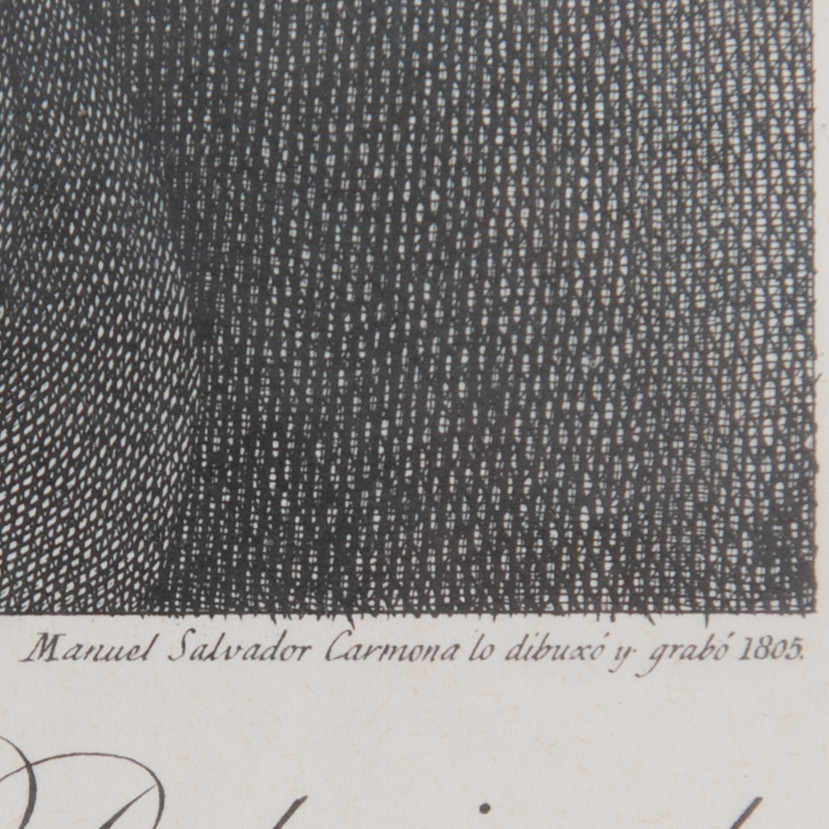 Manuel Salvador Carmona lo dibuxó y grabó 1805.